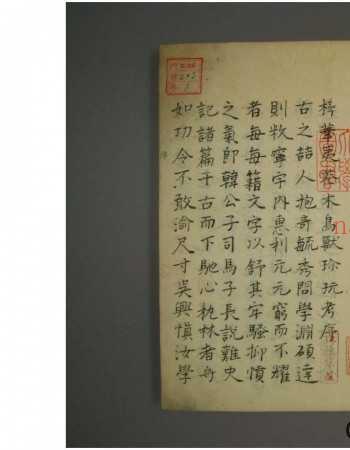 梓華夷花木鳥獸珍玩考序
古之喆人抱奇毓秀問學淵碩達
則牧寧宇內惠利元元窮而不耀
者每每籍文字以舒其牢騷抑憤
之氣卽韓公子司馬子長說難史
記諸篇千古而下馳心枕林者
如功令不敢渝尺寸吳興慎汝學